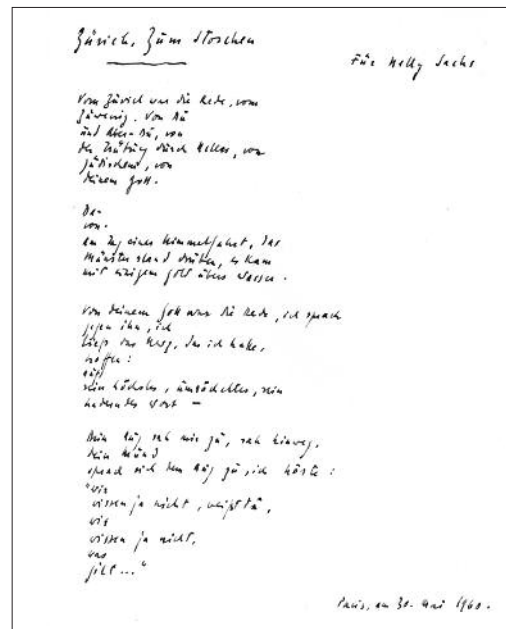 Zürich, Zum Storchen
Für Nelly Sachs
Vom Zuviel war die Rede, vom
Zuwenig. Von Du
und Aber-Du, von
der Trübung durch Helles, von
Jüdischem, von
deinem Gott.
Da-
von.
Am Tag einer Himmelfahrt, das
Münster stand drüben, es kam
mit einigem Gold übers Wasser.
Von deinem Gott war die Rede, ich sprach
gegen ihn, ich
ließ das Herz, das ich hatte,
hoffen:
auf
sein höchstes, umröcheltes, sein
haderndes Wort –
Dein Aug sah mir zu, sah hinweg,
dein Mund
sprach sich dem Aug zu, ich hörte:
"wir
wissen ja nicht, weißt du,
wir
wissen ja nicht,
was
gilt ..."
Paris, am 30. Mai 1960.